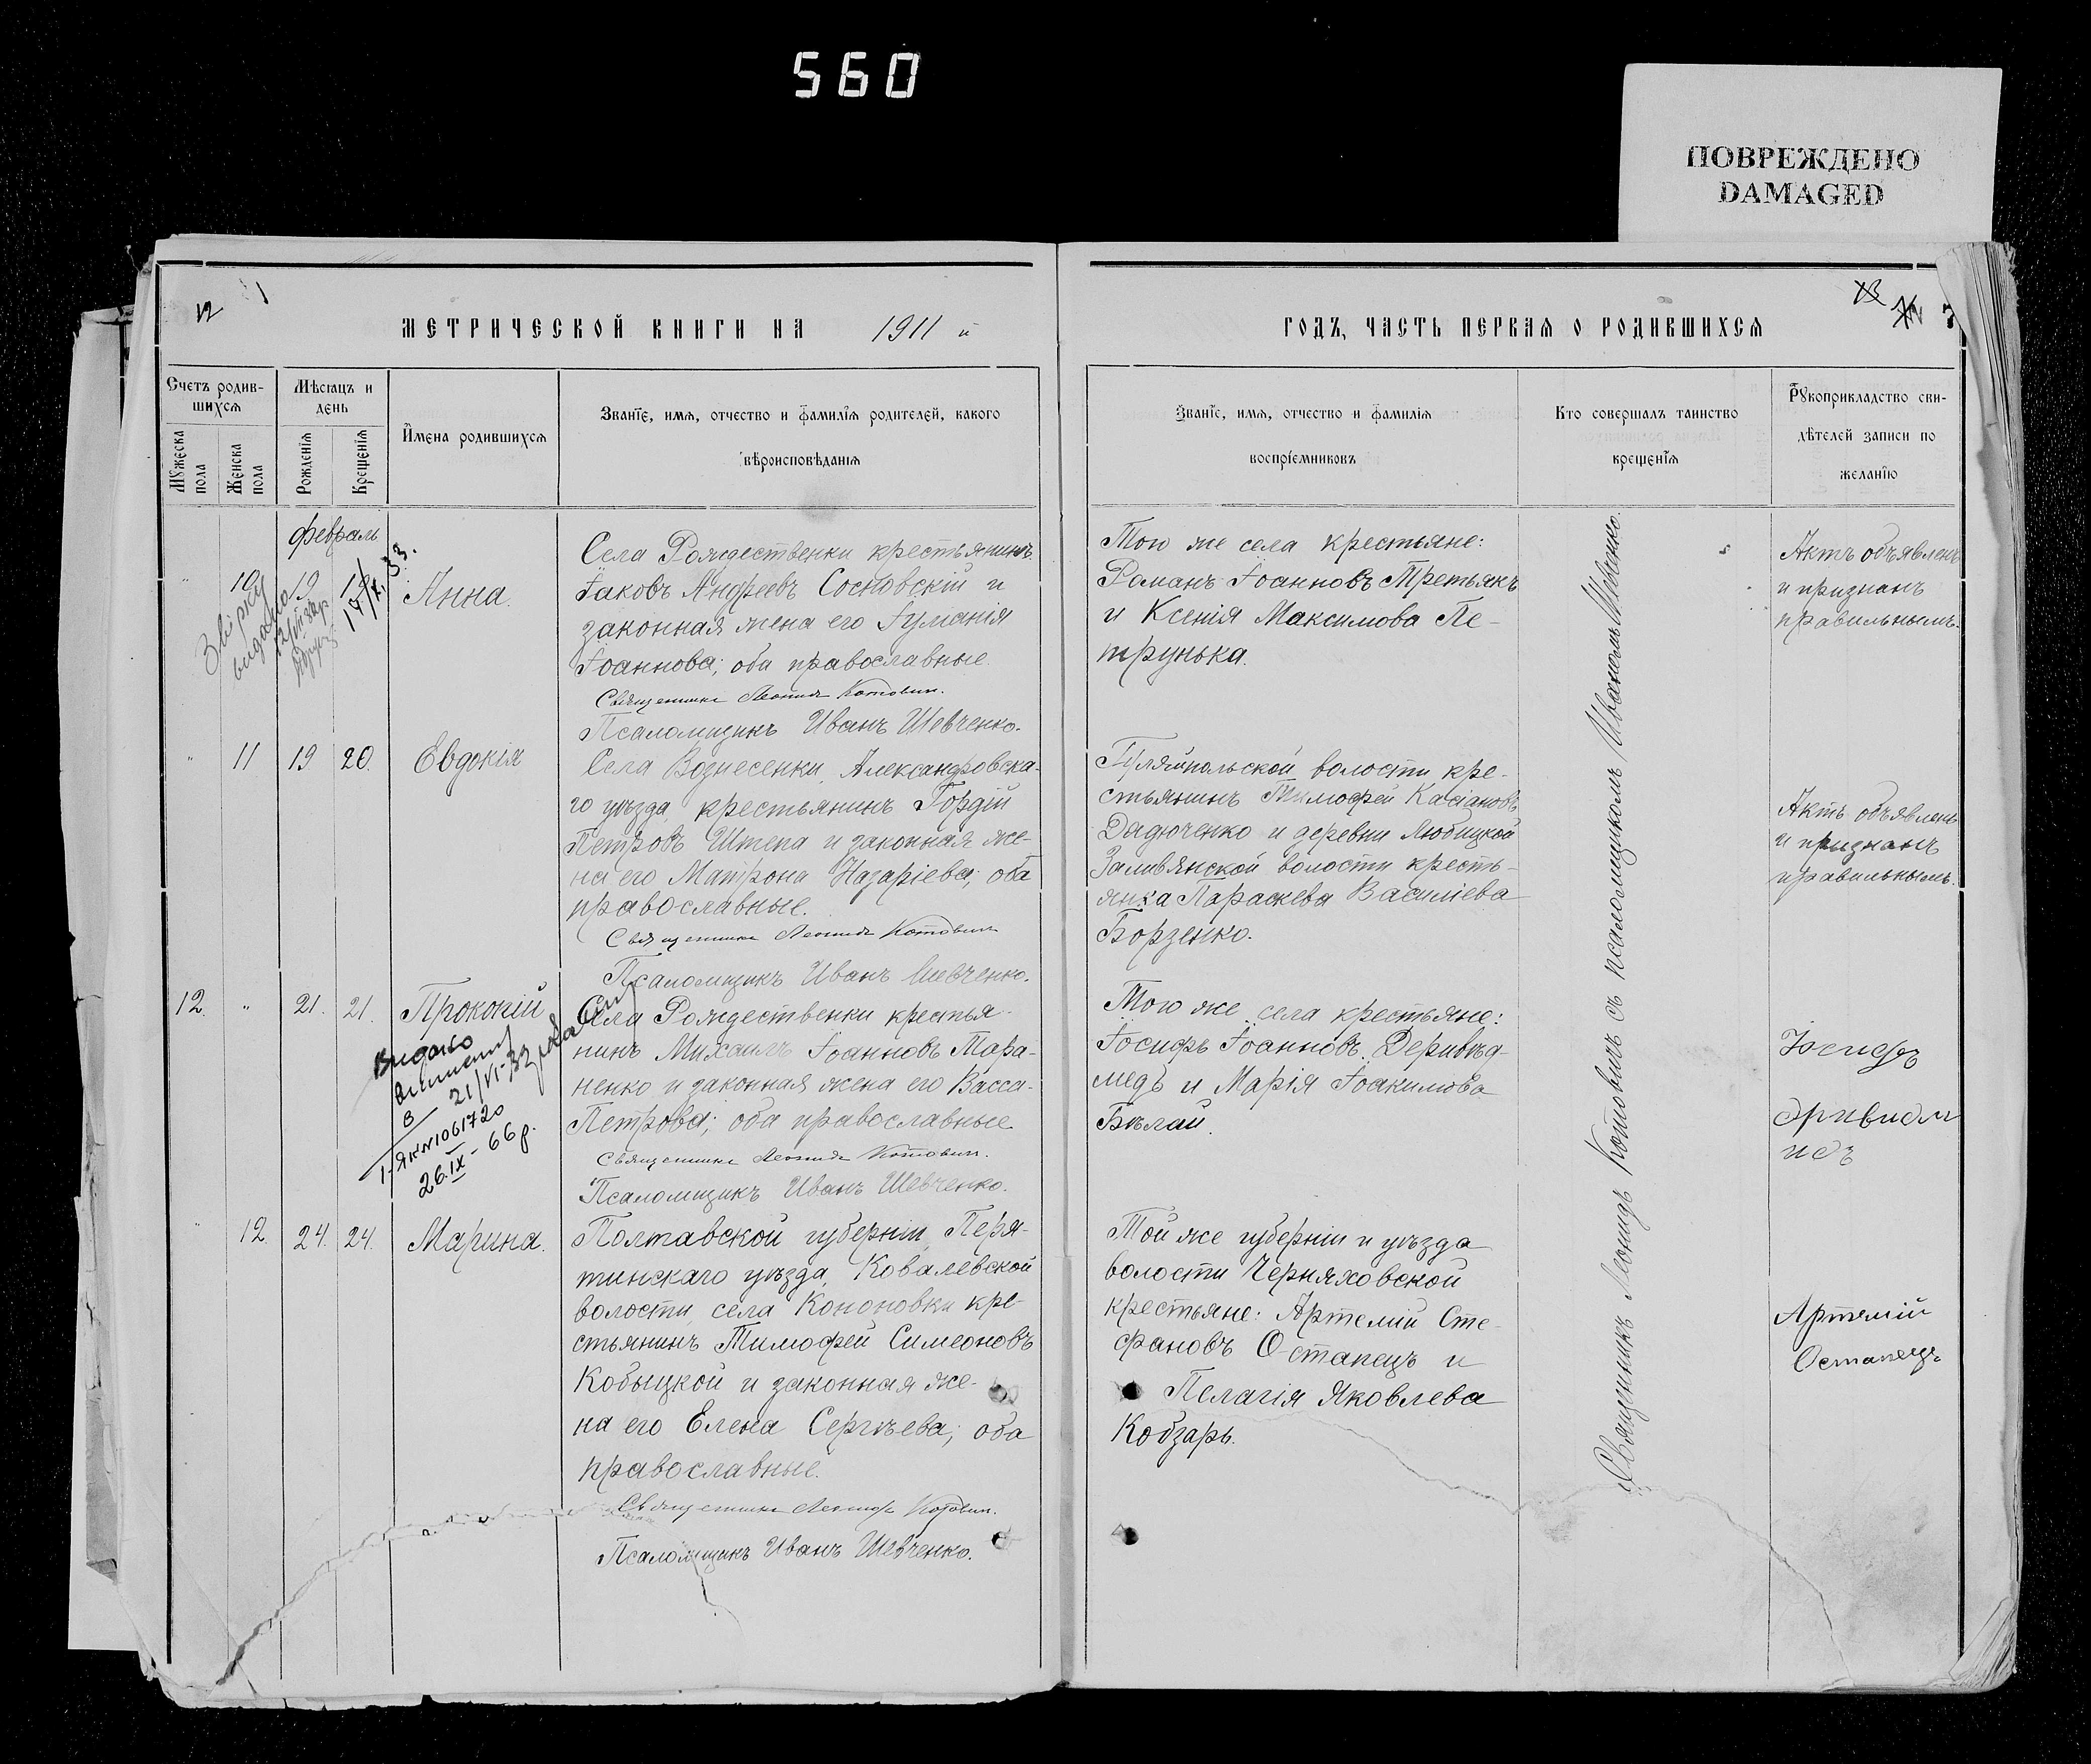 560
ПОВРЕЖДЕНО
DAMAGED
МЕТРИЧЕСКОЙ КНИГИ НА 1911 й
Счетъ родив-
шихся
Мѣсяцъ и
день
Мужеска
пола
Женска
пола
Рожденія
Крещенія
Имена родившихся
Званіе, имя, отчество и фамилія родителей, какого
вѣроисповѣданія
февраль
10 19
Анна.
Села Рождественки крестьянинъ
Іаковъ Андреевъ Сосновскій и
законная жена его Іуліанія
Іоаннова; оба православные.
Священникъ Леонидъ Котовичъ.
Псаломщикъ Иванъ Шевченко.
" 11 19 20. Евдокія
Села Вознесенки, Александровска-
го уѣзда, крестьянинъ Гордій
Петровъ Штепа и законная же-
на его Матрона Назаріева; оба
православные.
Священникъ Леонидъ Котовичъ
Псаломщикъ Иванъ Шевченко.
12. " 21. 21. Прокопій
Видано
21/VI-32
26.IX-66 р.
Села Рождественки крестья-
нинъ Михаилъ Іоанновъ Тара-
ненко и законная жена его Васса
Петрова; оба православные.
Священникъ Леонидъ Котовичъ.
Псаломщикъ Иванъ Шевченко.
" 12. 24. 24. Марина.
Полтавской губерніи, Пиря-
тинскаго уѣзда, Ковалевской
волости, села Кононовки кре-
стьянинъ Тимофей Симеоновъ
Кобыцкой и законная же-
на его Елена Сергѣева; оба
православные.
Священникъ Леонидъ Котовичъ.
Псаломщикъ Иванъ Шевченко.
ГОДЪ, ЧАСТЬ ПЕРВАЯ О РОДИВШИХСЯ
Званіе, имя, отчество и фамилія
воспріемниковъ
Кто совершалъ таинство
крещенія
Рукоприкладство сви-
дѣтелей записи по
желанію
Того же села крестьяне:
Романъ Іоанновъ Третьякъ
и Ксенія Максимова Пе-
трунька.
Гуляйпольской волости, кре-
стьянинъ Тимофей Касіановъ
Дадюченко и деревни Любицкой
Заливянской волости кресть-
янка Параскева Василіева
Борзенко.
Того же села крестьяне:
Іосифъ Іоанновъ Деривед-
медъ и Марія Іоакимова
Бѣлай.
Той же губерніи и уѣзда
волости Черняховской
крестьяне: Артемій Сте-
фановъ Остапецъ и
Пелагія Яковлева
Кобзарь.
Священникъ Леонидъ Котовичъ съ псаломщикомъ Иваномъ Шевченко.
Актъ объявленъ
и признанъ
правильнымъ.
Актъ объявленъ
и признанъ
правильнымъ.
Артемій
Остапецъ